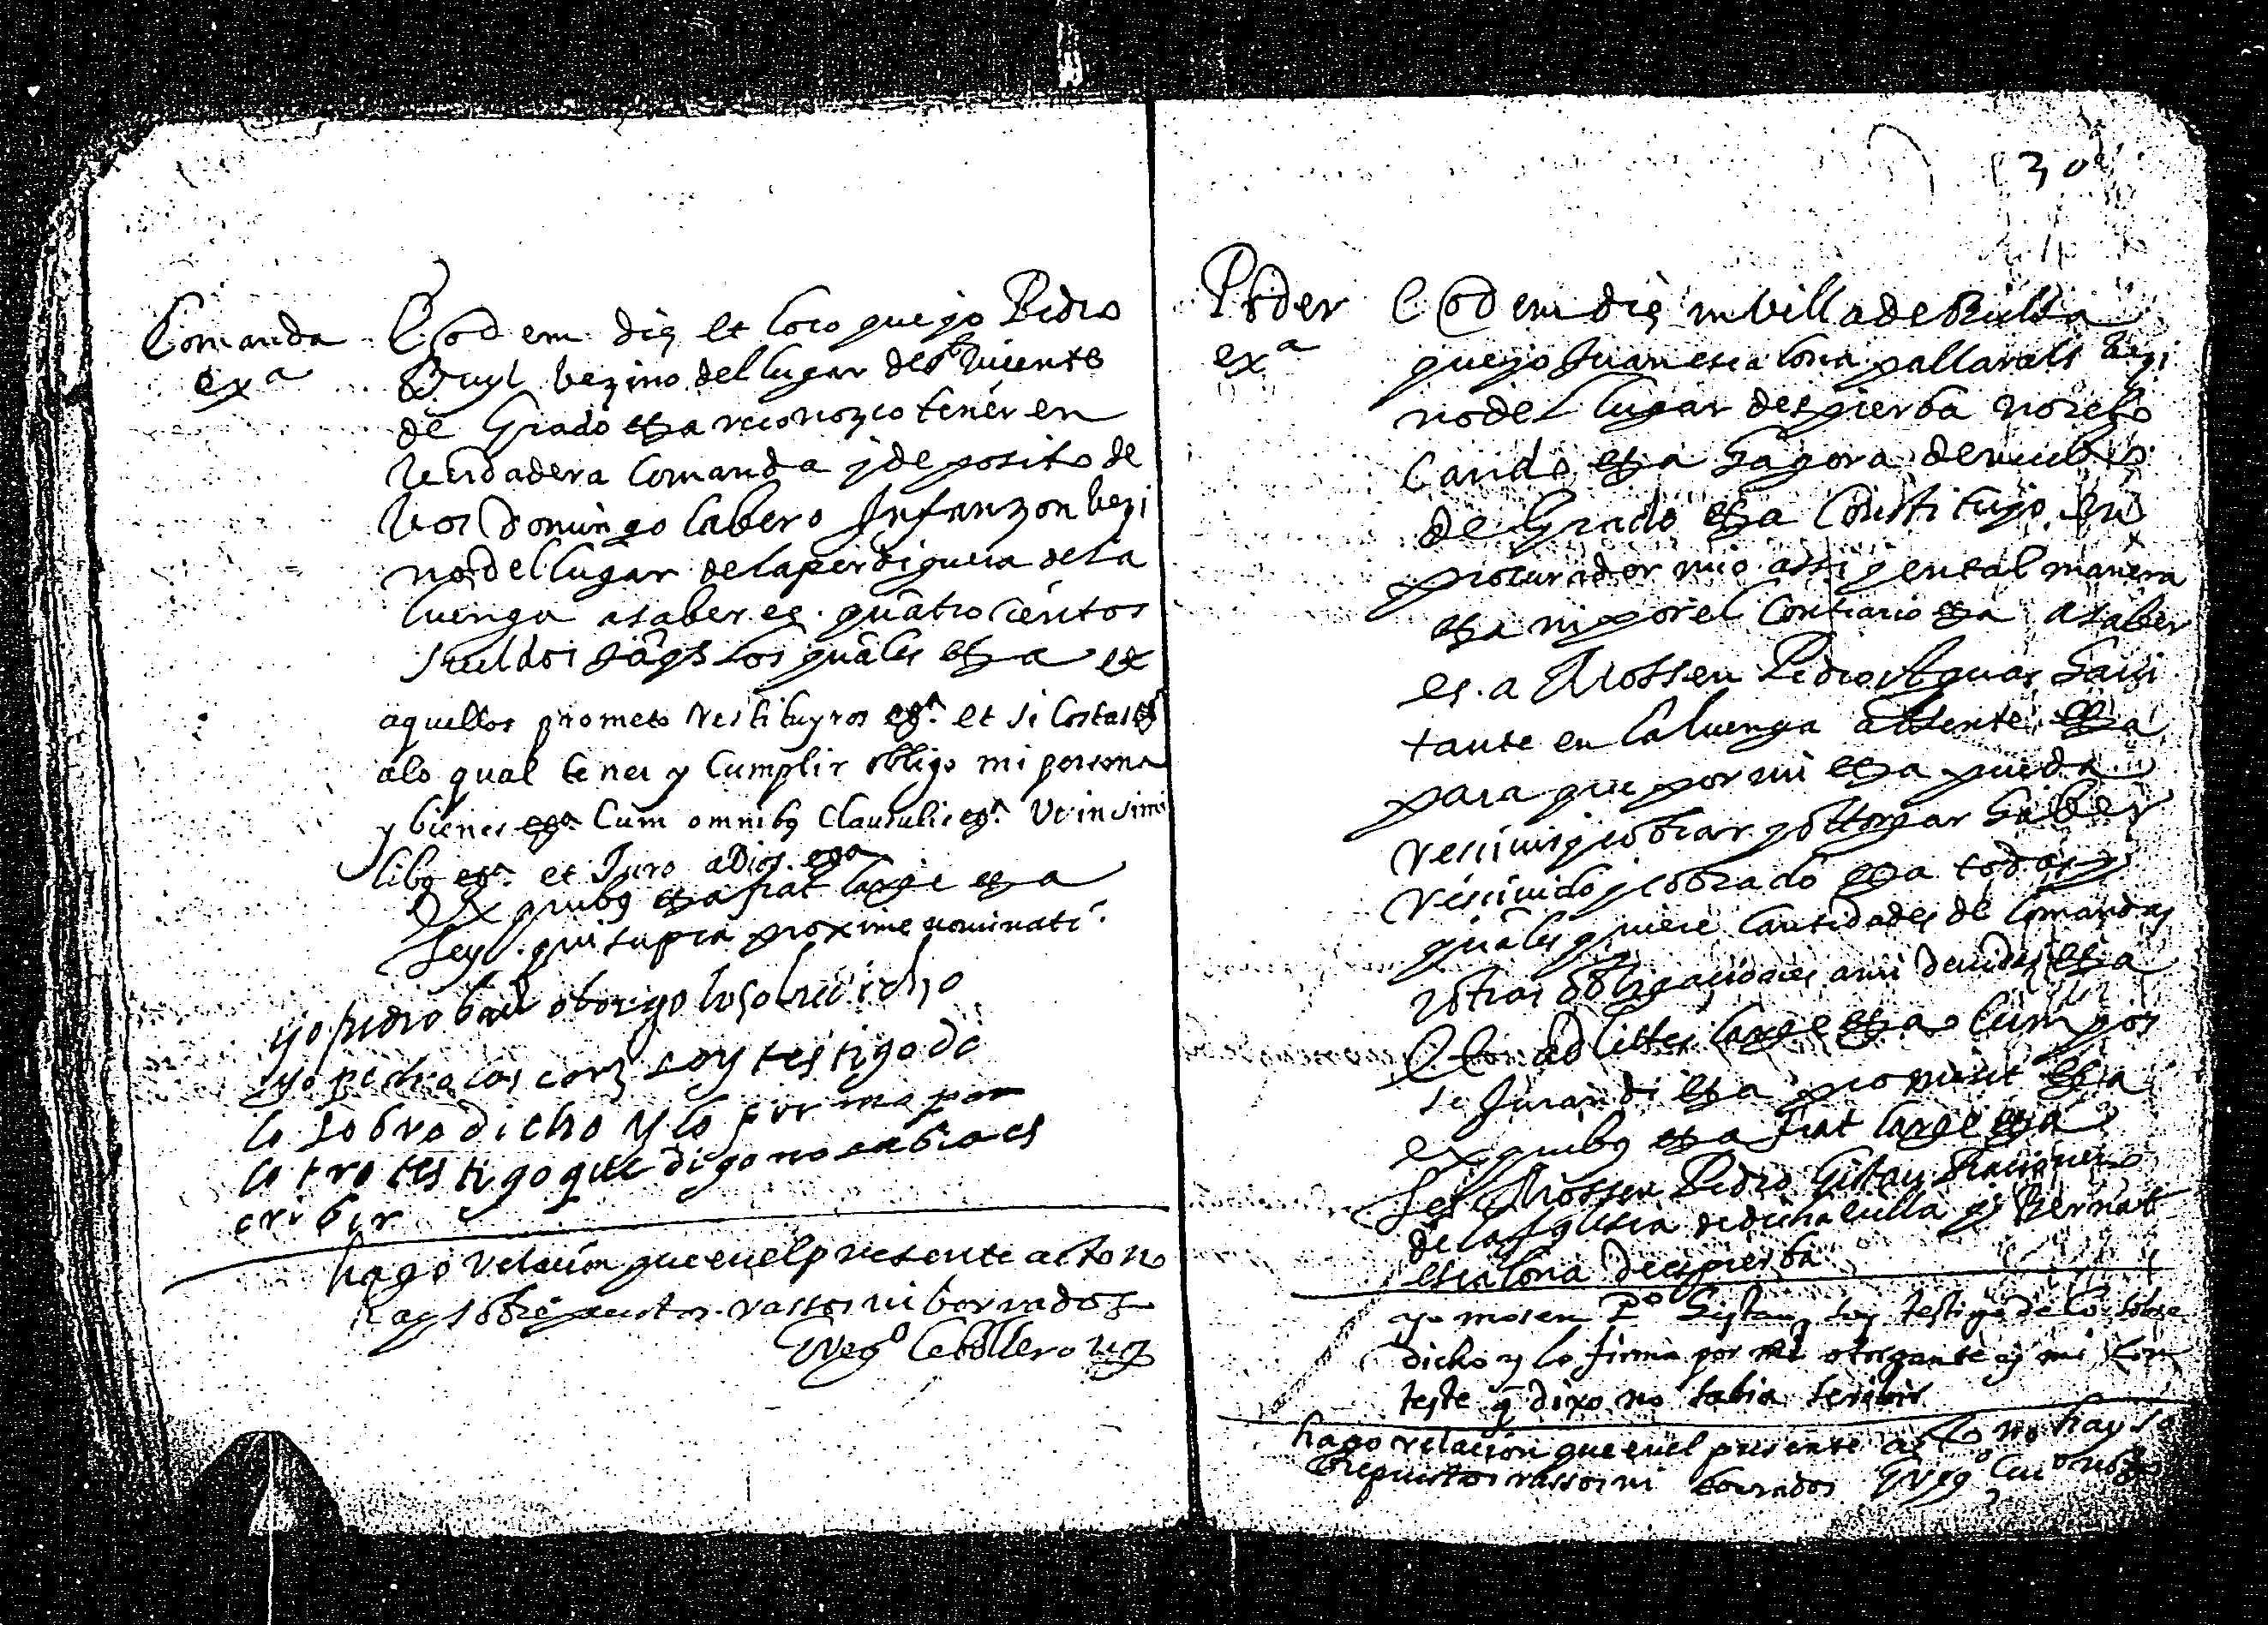 Comanda
exª
Eodem die et loco que yo Pedro
Buyl bezino del lugar de Sᵗ Vicente
de Grado etza reconozco tener en
verdadera comanda y deposito de
vos Domingo Cabero Infanzon bezi
no del lugar de la perdiguera de la
luenga a saber es quatro cientos
sueldos jaqs los quales etza et
aquellos prometo restituyros etzª et si costas
a lo qual tener y cumplir obligo mi persona
y bienes etzª Cum omnibꝰ clausulis etzª Ut in simi
libꝰ etzª et Juro a Dios etzª
Ex quibꝰ etza fiat large etza
qui supra proxime nominati
yo pedro buil otorgo lo sobredicho
yo pedro cos soy testigo de
lo sobredicho y lo firme por
lo tro testigo que digo no sabia es
cribir
hago relacion que en el presente acto no
ay sobrepuestos rassos ni borrados
Gregº Cebollero noᵗ
30
Poder
exª
Eodem die in villa de
que yo Juan escalona pallaruelo bezi
no del lugar despierba no rebo
cando etza agora de nuebo
de Grado etza Constituyo en
procurador mio assi y en tal manera
etza ni por el contrario etza a saber
es a Mossen Pedro Aguar havi
tante en la luenga absente etza
para que por mi etza pueda
rescivir y cobrar y ottorgar haber
rescivido y cobrado etza todas y
quales quiere cantidades de Comandas
y otras obligaciones a mi devidas etza
ad lites large etza Cum pos
se Jurandi etza promitt etza
ex quibꝰ etza fiat large etza
Mossen Pedro Gistau Racionero
de la Iglesia de dicha villa y Bernat
escalona de espierba
yo mosen Pº Gistau soy testigo de lo sobre
dicho y lo firma por el otorgante y mi con
teste q̃ dixo no sabia scribir
hago relacion que en el presente acto no hay so
brepuestos rassos ni borrados Gregº